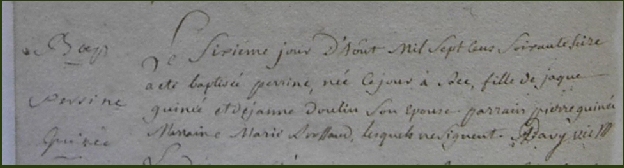 Bap
perrine
guinée
Le Sixieme jour D'Aôut Mil Sept Cens Soixante Seize
a eté baptisée perrine, née Ce jour à fille de jaque
guinée et de janne Doulin Son epouse parrain pierre guinée
Maraine Marie lesquels ne signent.